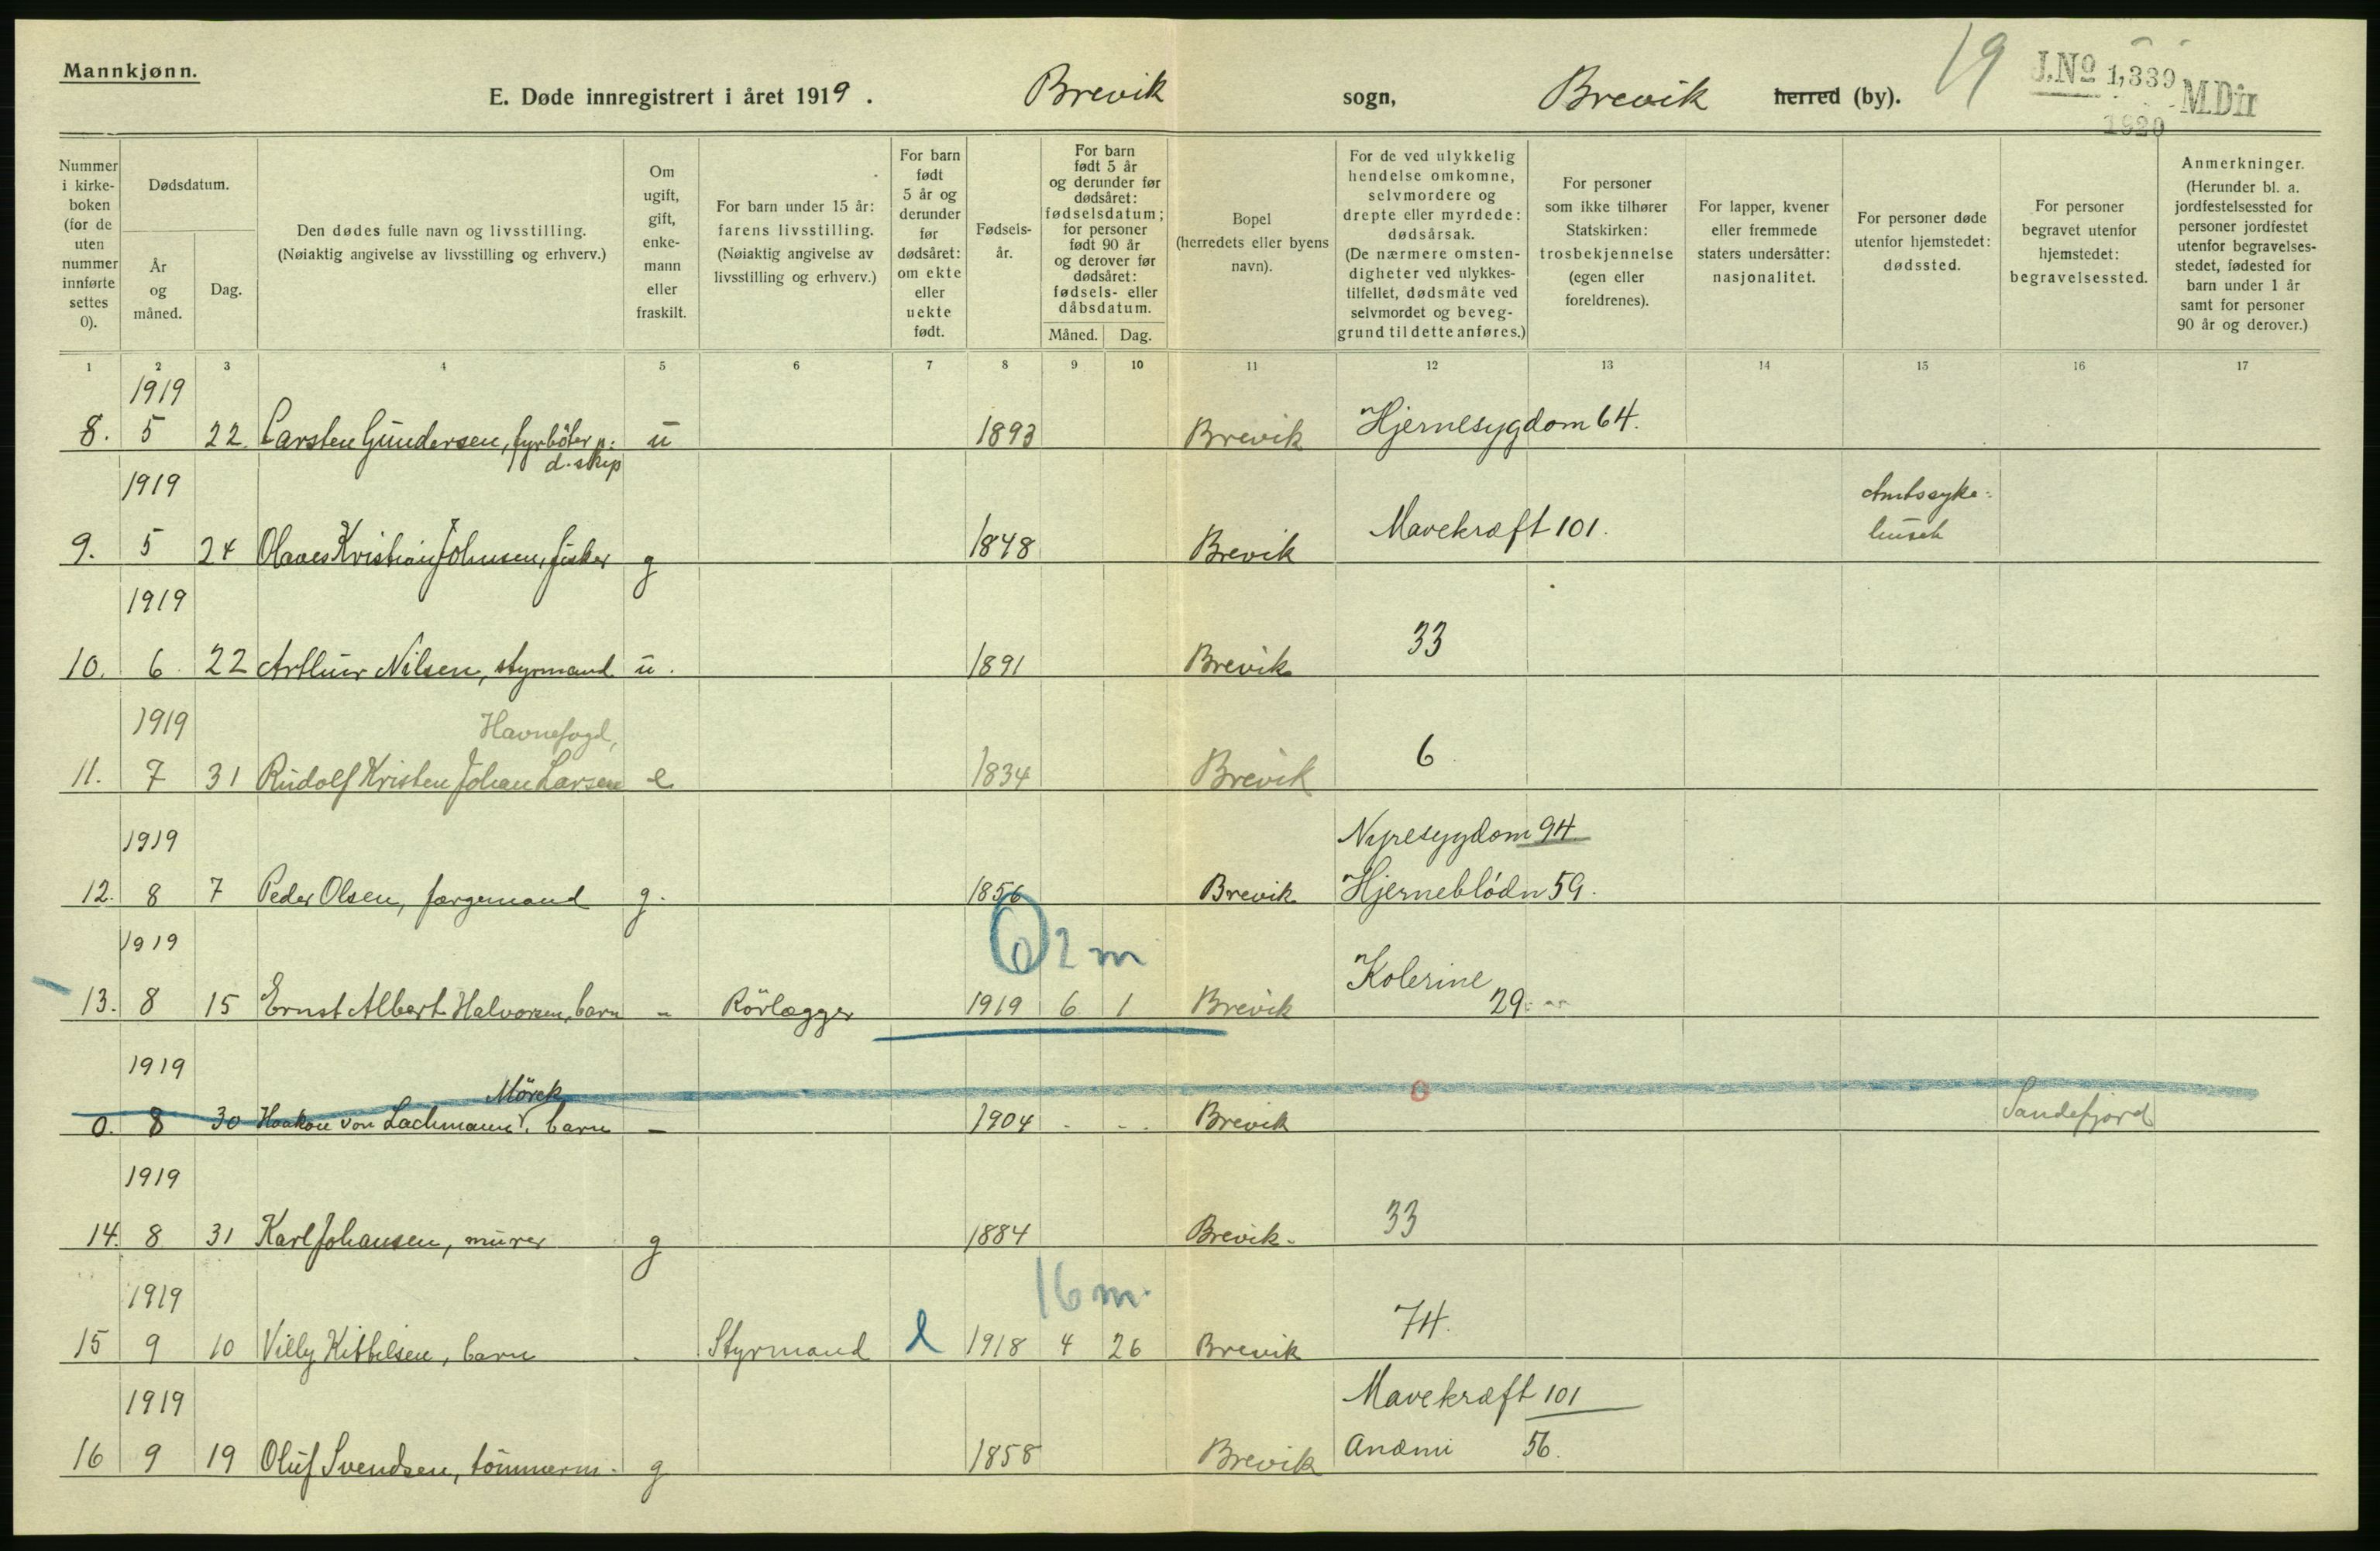 Mannkjønn.
E. Døde innregistrert i året 1919. Brevik sogn, Brevik herred (by).
19
J.No 1,339 M.Dir
1920
Nummer i kirkeboken (for de uten nummer innførte settes 0).
Dødsdatum.
År og måned.
Dag.
Den dødes fulle navn og livsstilling.
(Nøiaktig angivelse av livsstilling og erhverv.)
Om ugift, gift, enkemann eller fraskilt.
For barn under 15 år: farens livsstilling.
(Nøiaktig angivelse av livsstilling og erhverv.)
For barn født 5 år og derunder før dødsåret: om ekte eller uekte født.
Fødselsår.
For barn født 5 år og derunder før dødsåret: fødselsdatum; for personer født 90 år og derover før dødsåret: fødsels- eller dåbsdatum.
Måned. Dag.
Bopel (herredets eller byens navn).
For de ved ulykkelig hendelse omkomne, selvmordere og drepte eller myrdede: dødsårsak.
(De nærmere omstendigheter ved ulykkestilfellet, dødsmåte ved selvmordet og beveggrund til dette anføres.)
For personer som ikke tilhører Statskirken: trosbekjennelse (egen eller foreldrenes).
For lapper, kvener eller fremmede staters undersåtter: nasjonalitet.
For personer døde utenfor hjemstedet: dødssted.
For personer begravet utenfor hjemstedet: begravelsessted.
Anmerkninger.
(Herunder bl. a. jordfestelsessted for personer jordfestet utenfor begravelsesstedet, fødested for barn under 1 år samt for personer 90 år og derover.)
1 2 3 4 5 6 7 8 9 10 11 12 13 14 15 16 17
1919
8. 5 22. Carsten Gundersen, fyrbøter p: u 1893 Brevik Hjernesygdom 64.
d. skip
1919
Amtssyke-
9. 5 24 Olaves Kristian Johnsen, fisker g 1848 Brevik Mavekræft 101. huset
1919
10. 6 22 Arthur Nilsen, styrmand u. 1891 Brevik 33
1919
Havnefogd,
11. 7 31 Rudolf Kristen Johan Larsen e 1834 Brevik 6
1919
Nyresygdom 94
12. 8 7 Peder Olsen, færgemand g. 1856 Brevik Hjerneblödn 59.
1919
0 2 m
Kolerine
13. 8 15 Ernst Albert Halvorsen, barn - Rörlægger 1919 6 1 Brevik 29.
1919
Mörck
0. 8 30 Haakon von Lachmann, barn - 1904 - - Brevik 0 Sandefjord
1919
14. 8 31 Karl Johansen, murer g 1884 Brevik. 33
1919
16 m.
15 9 10 Villy Kittilsen, barn . Styrmand l 1918 4 26 Brevik 74.
1919
Mavekræft 101
16 9 19 Oluf Svendsen, tömmerm. g 1858 Brevik Anæmi 56.